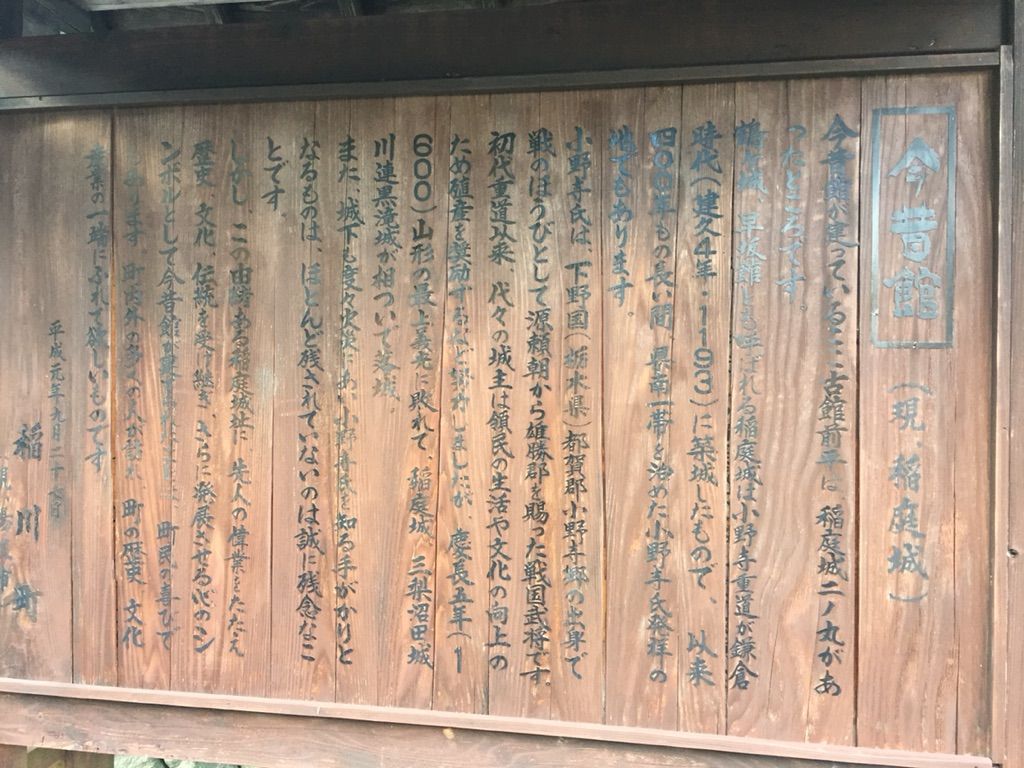 今昔館(現、稲庭城)
今昔館が建っているここ古館前平は、稲庭城二ノ丸があ
ったところです。
鶴ヶ城、早坂館とも呼ばれる稲庭城は小野寺重道が鎌倉
時代(建久4年・1193)に築城したもので、以来
四00年もの長い間、県南一帯を治めた小野寺氏発祥の
地でもあります。
小野寺氏は、下野国(栃木県)都賀郡小野寺郷の出身で
戦のほうびとして源頼朝から雄勝郡を賜った戦国武将です。
初代重道以来、代々の城主は領民の生活や文化の向上の
ため殖産を奨励するなど努力しましたが、慶長五年(1
600)山形の最上義光に敗れて、稲庭城、三梨沼田城
川連黒滝城が相ついで落城。
また、城下も度々火災にあい小野寺氏を知る手がかりと
なるものは、ほとんど残されていないのは誠に残念なこ
とです。
しかし、この由緒ある稲庭城址に、先人の偉業をたたえ
歴史、文化、伝統を受け継ぎ、さらに発展させる心のシ
ンボルとして今昔館が建てられたことは、町民の喜びで
あります。町内外の多くの人が訪れ、町の歴史、文化
産業の一端にふれて欲しいものです。
平成元年九月二十
稲川町